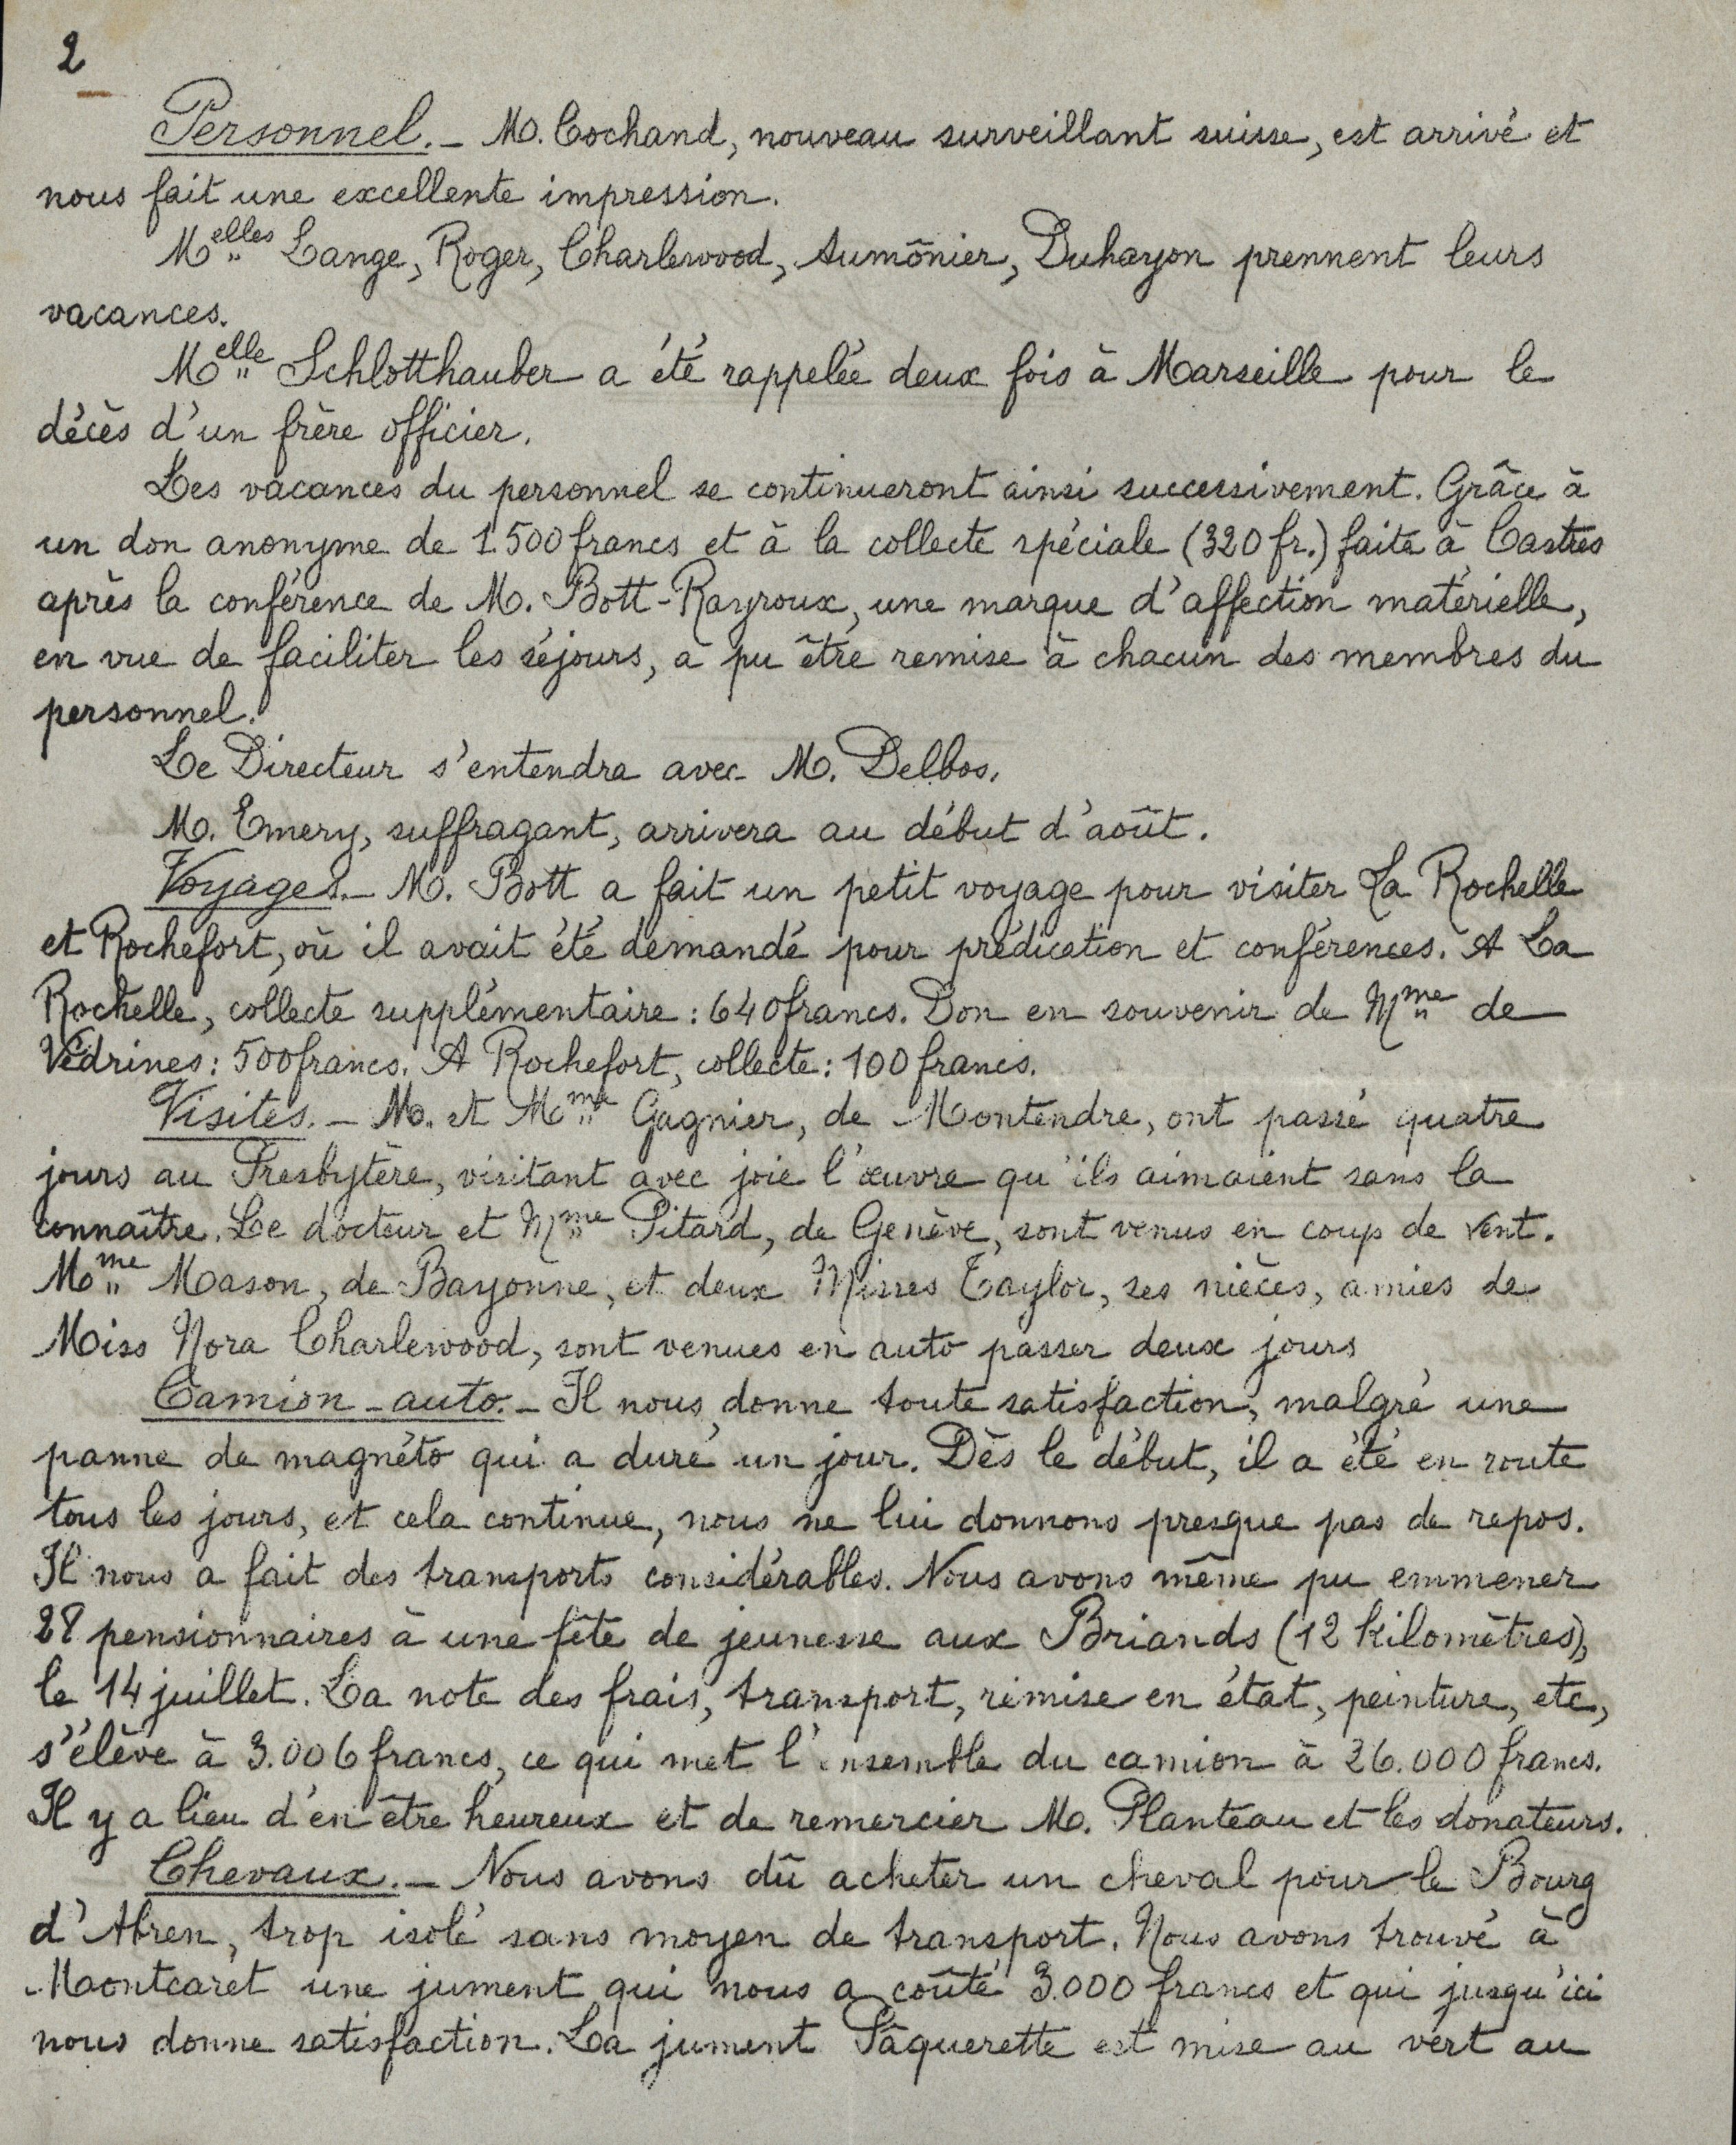 2
Personnel. - M. Cochand, nouveau surveillant suisse, est arrivé et
nous fait une excellente impression.
Melles Lange, Roger, Charlewood, Aumônier, Duhayon prennent leurs
vacances.
Melle Schlotthauber a été rappelée deux fois à Marseille pour le
décès d'un frère officier.
Les vacances du personnel se continueront ainsi successivement. Grâce à
un don anonyme de 1.500 francs et à la collecte spéciale (320 fr.) faite à Castres
après la conférence de M. Bott-Rayroux, une marque d'affection matérielle,
en vue de faciliter les séjours, a pu être remise à chacun des membres du
personnel.
Le Directeur s'entendra avec M. Delbos.
M. Emery, suffragant, arrivera au début d'août.
Voyages. - M. Bott a fait un petit voyage pour visiter La Rochelle
et Rochefort, où il avait été demandé pour prédication et conférences. A La
Rochelle, collecte supplémentaire : 640 francs. Don en souvenir de Mme de
Védrines : 500 francs. A Rochefort, collecte : 100 francs.
Visites. - M. et Mme Gagnier, de Montendre, ont passé quatre
jours au Presbytère, visitant avec joie l'œuvre qu'ils aimaient sans la
connaître. Le docteur et Mme Pitard, de Genève, sont venus en coup de vent.
Mme Mason, de Bayonne, et deux Misses Taylor, ses nièces, amies de
Miss Nora Charlewood, sont venues en auto passer deux jours
Camion-auto. - Il nous donne toute satisfaction, malgré une
panne de magnéto qui a duré un jour. Dès le début, il a été en route
tous les jours, et cela continue, nous ne lui donnons presque pas de repos.
Il nous a fait des transports considérables. Nous avons même pu emmener
28 pensionnaires à une fête de jeunesse aux Briands (12 kilomètres),
le 14 juillet. La note des frais, transport, remise en état, peinture, etc,
s'élève à 3.006 francs, ce qui met l'ensemble du camion à 26.000 francs.
Il y a lieu d'en être heureux et de remercier M. Planteau et les donateurs.
Chevaux. - Nous avons dû acheter un cheval pour le Bourg
d'Abren, trop isolé sans moyen de transport. Nous avons trouvé à
Montcaret une jument qui nous a coûté 3.000 francs et qui jusqu'ici
nous donne satisfaction. La jument Pâquerette est mise au vert au